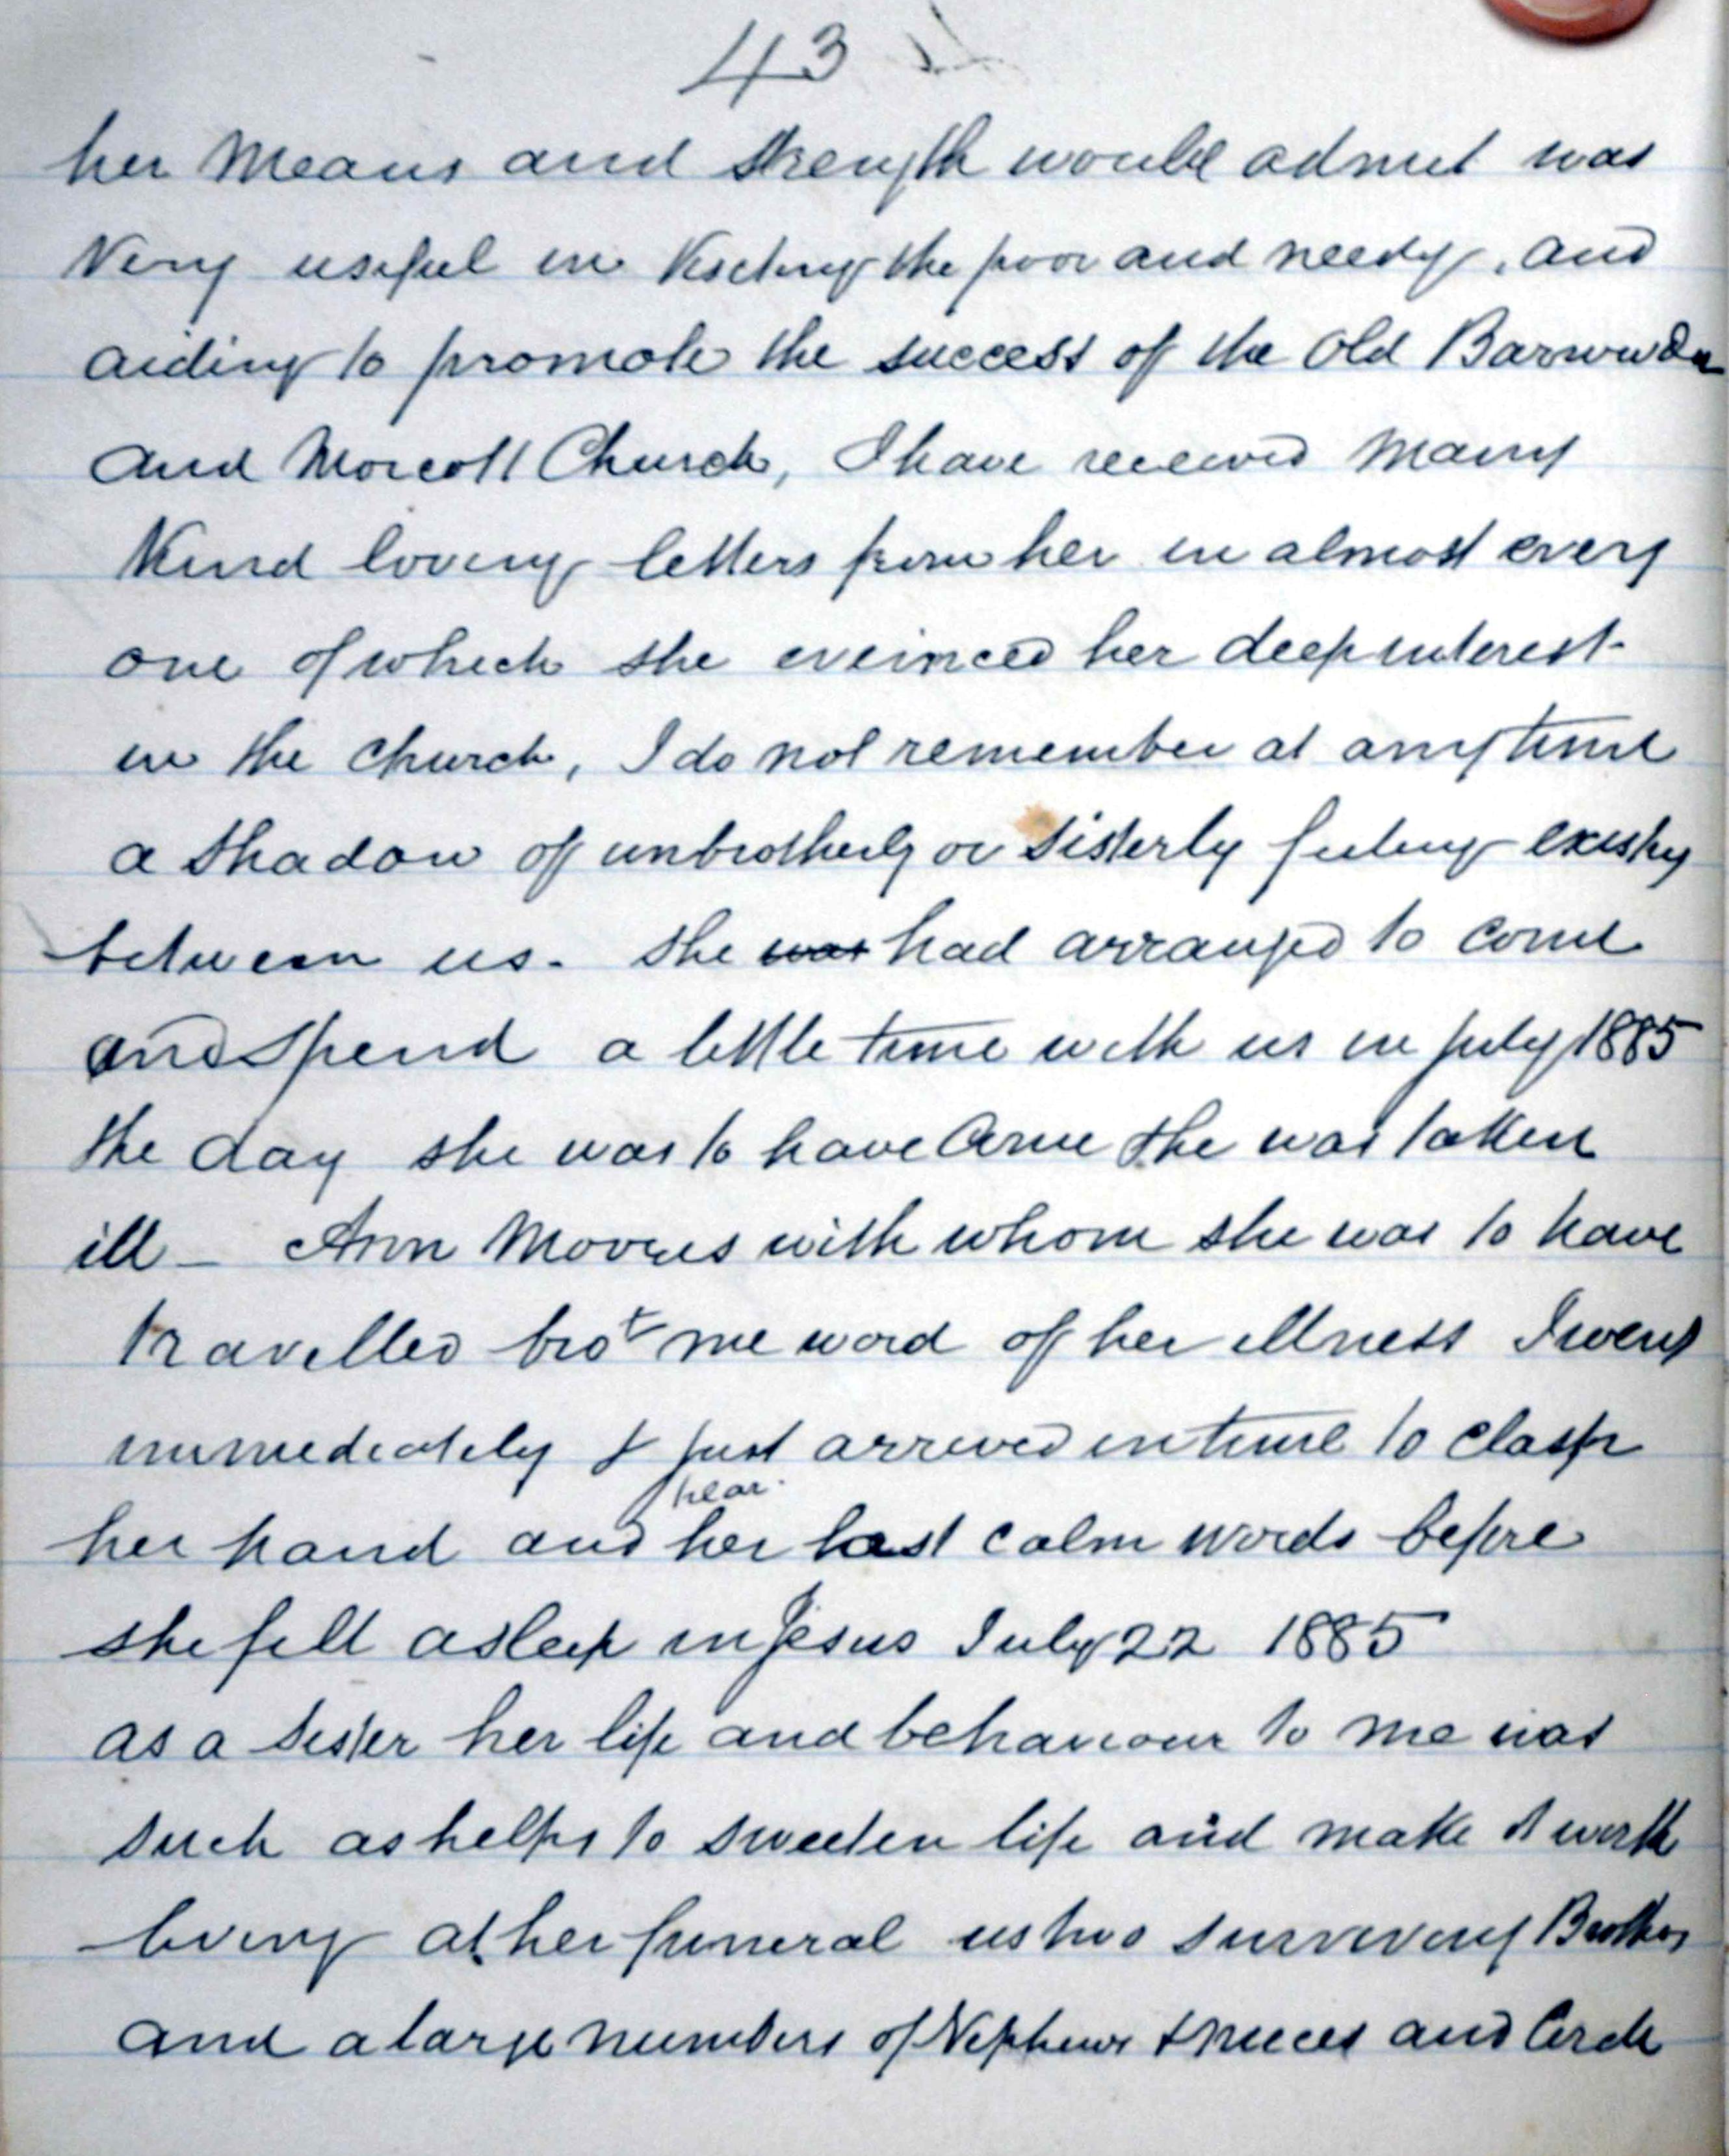 43
her Means and strength would admit was
Very useful in Visiting the poor and needy, and
aiding to promote the success of the Old Barrowden
and Morcott Church, I have received Many
Kind loving letters from her in almost every
one of which she evinced her deep interest
in the Church, I do not remember at any time
a shadow of unbrotherly or sisterly feeling existing
between us. She was had arranged to come
and spend a little time with us in July 1885
the day she was to have Come she was taken
ill - Ann with whom she was to have
travelled bro^t me word of her illness I went
immediately & just arrived in time to clasp
hear
her hand and her last calm words before
she fell asleep in Jesus July 22 1885
as a sister her life and behaviour to me was
such as helps to sweeten life and make it worth
living at her funeral us two surviving Brothers
and a large numbers of Nephews & nieces and Circle